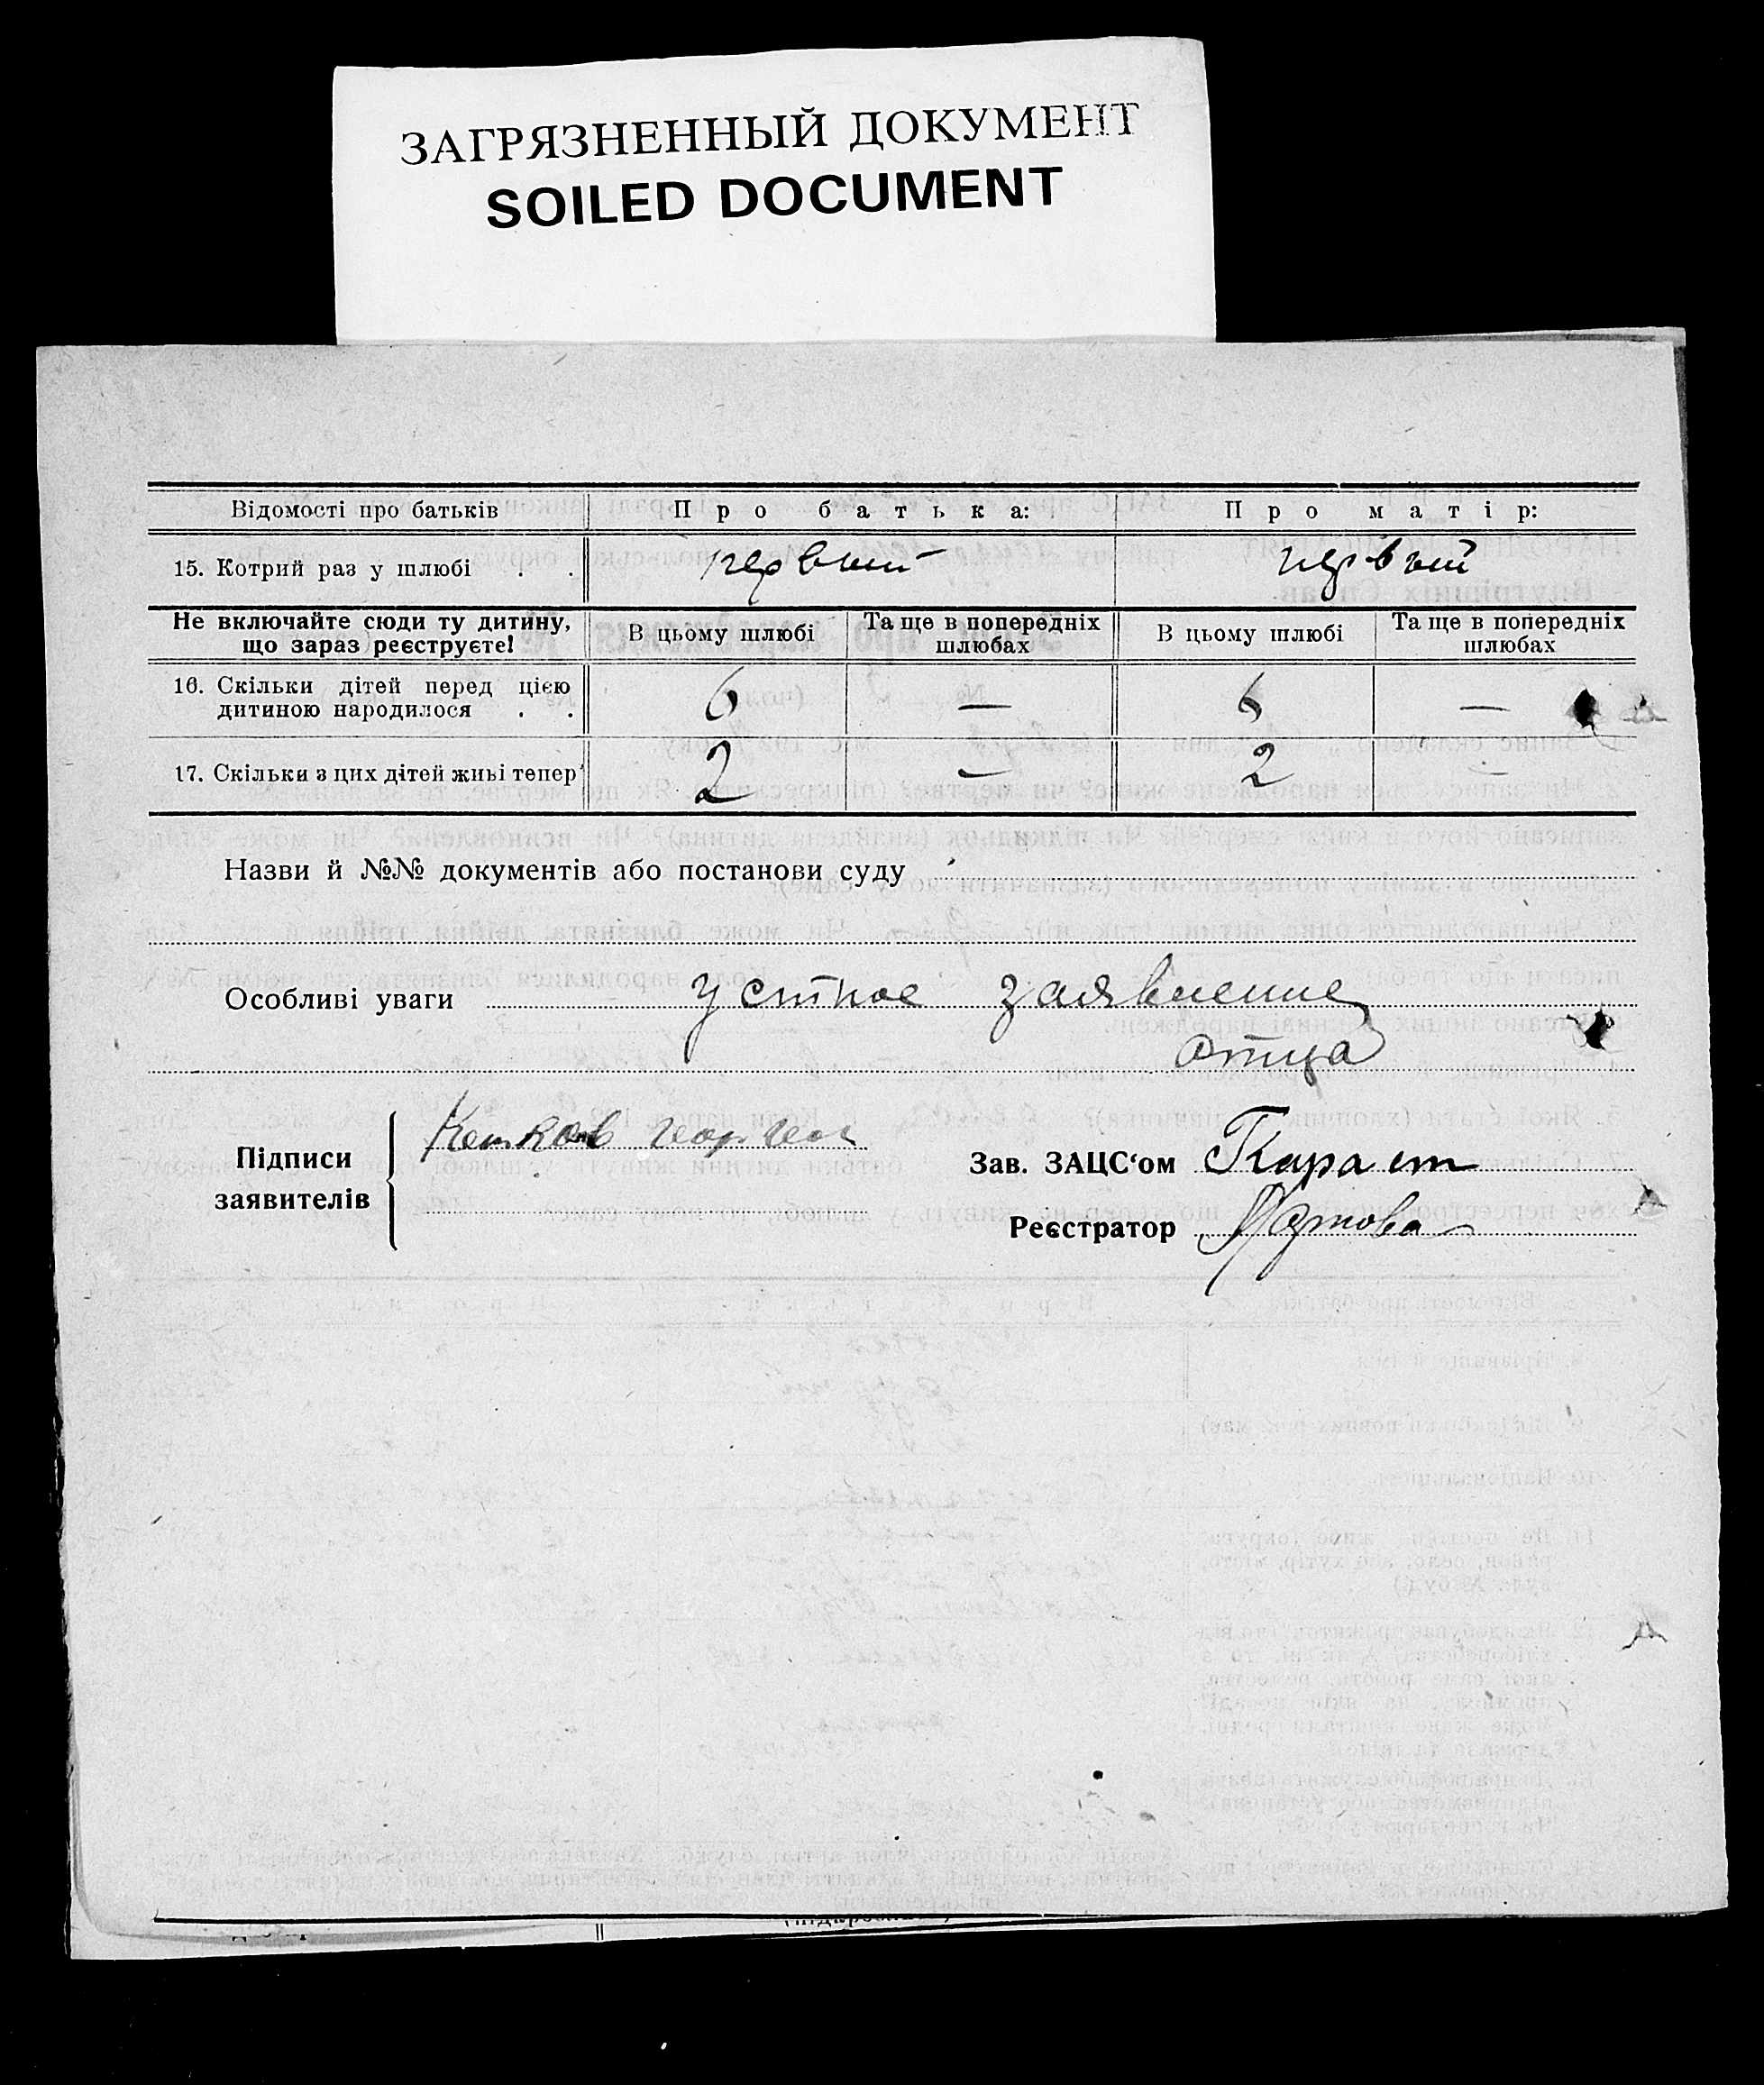 ЗАГРЯЗНЕННЫЙ ДОКУМЕНТ
SOILED DOCUMENT
Відомості про батьків Про батька: Про матір:
15. Котрий раз у шлюбі . . первый первый
Не включайте сюди ту дитину, що зараз реєструєте! В цьому шлюбі Та ще в попередніх шлюбах В цьому шлюбі Та ще в попередніх шлюбах
16. Скільки дітей перед цією дитиною народилося . . 6 — 6 —
17. Скільки з цих дітей живі тепер 2 — 2 —
Назви й №№ документів або постанови суду
Особливі уваги устное заявление
отца
Підписи заявителів
Зав. ЗАЦС‘ом
Реєстратор